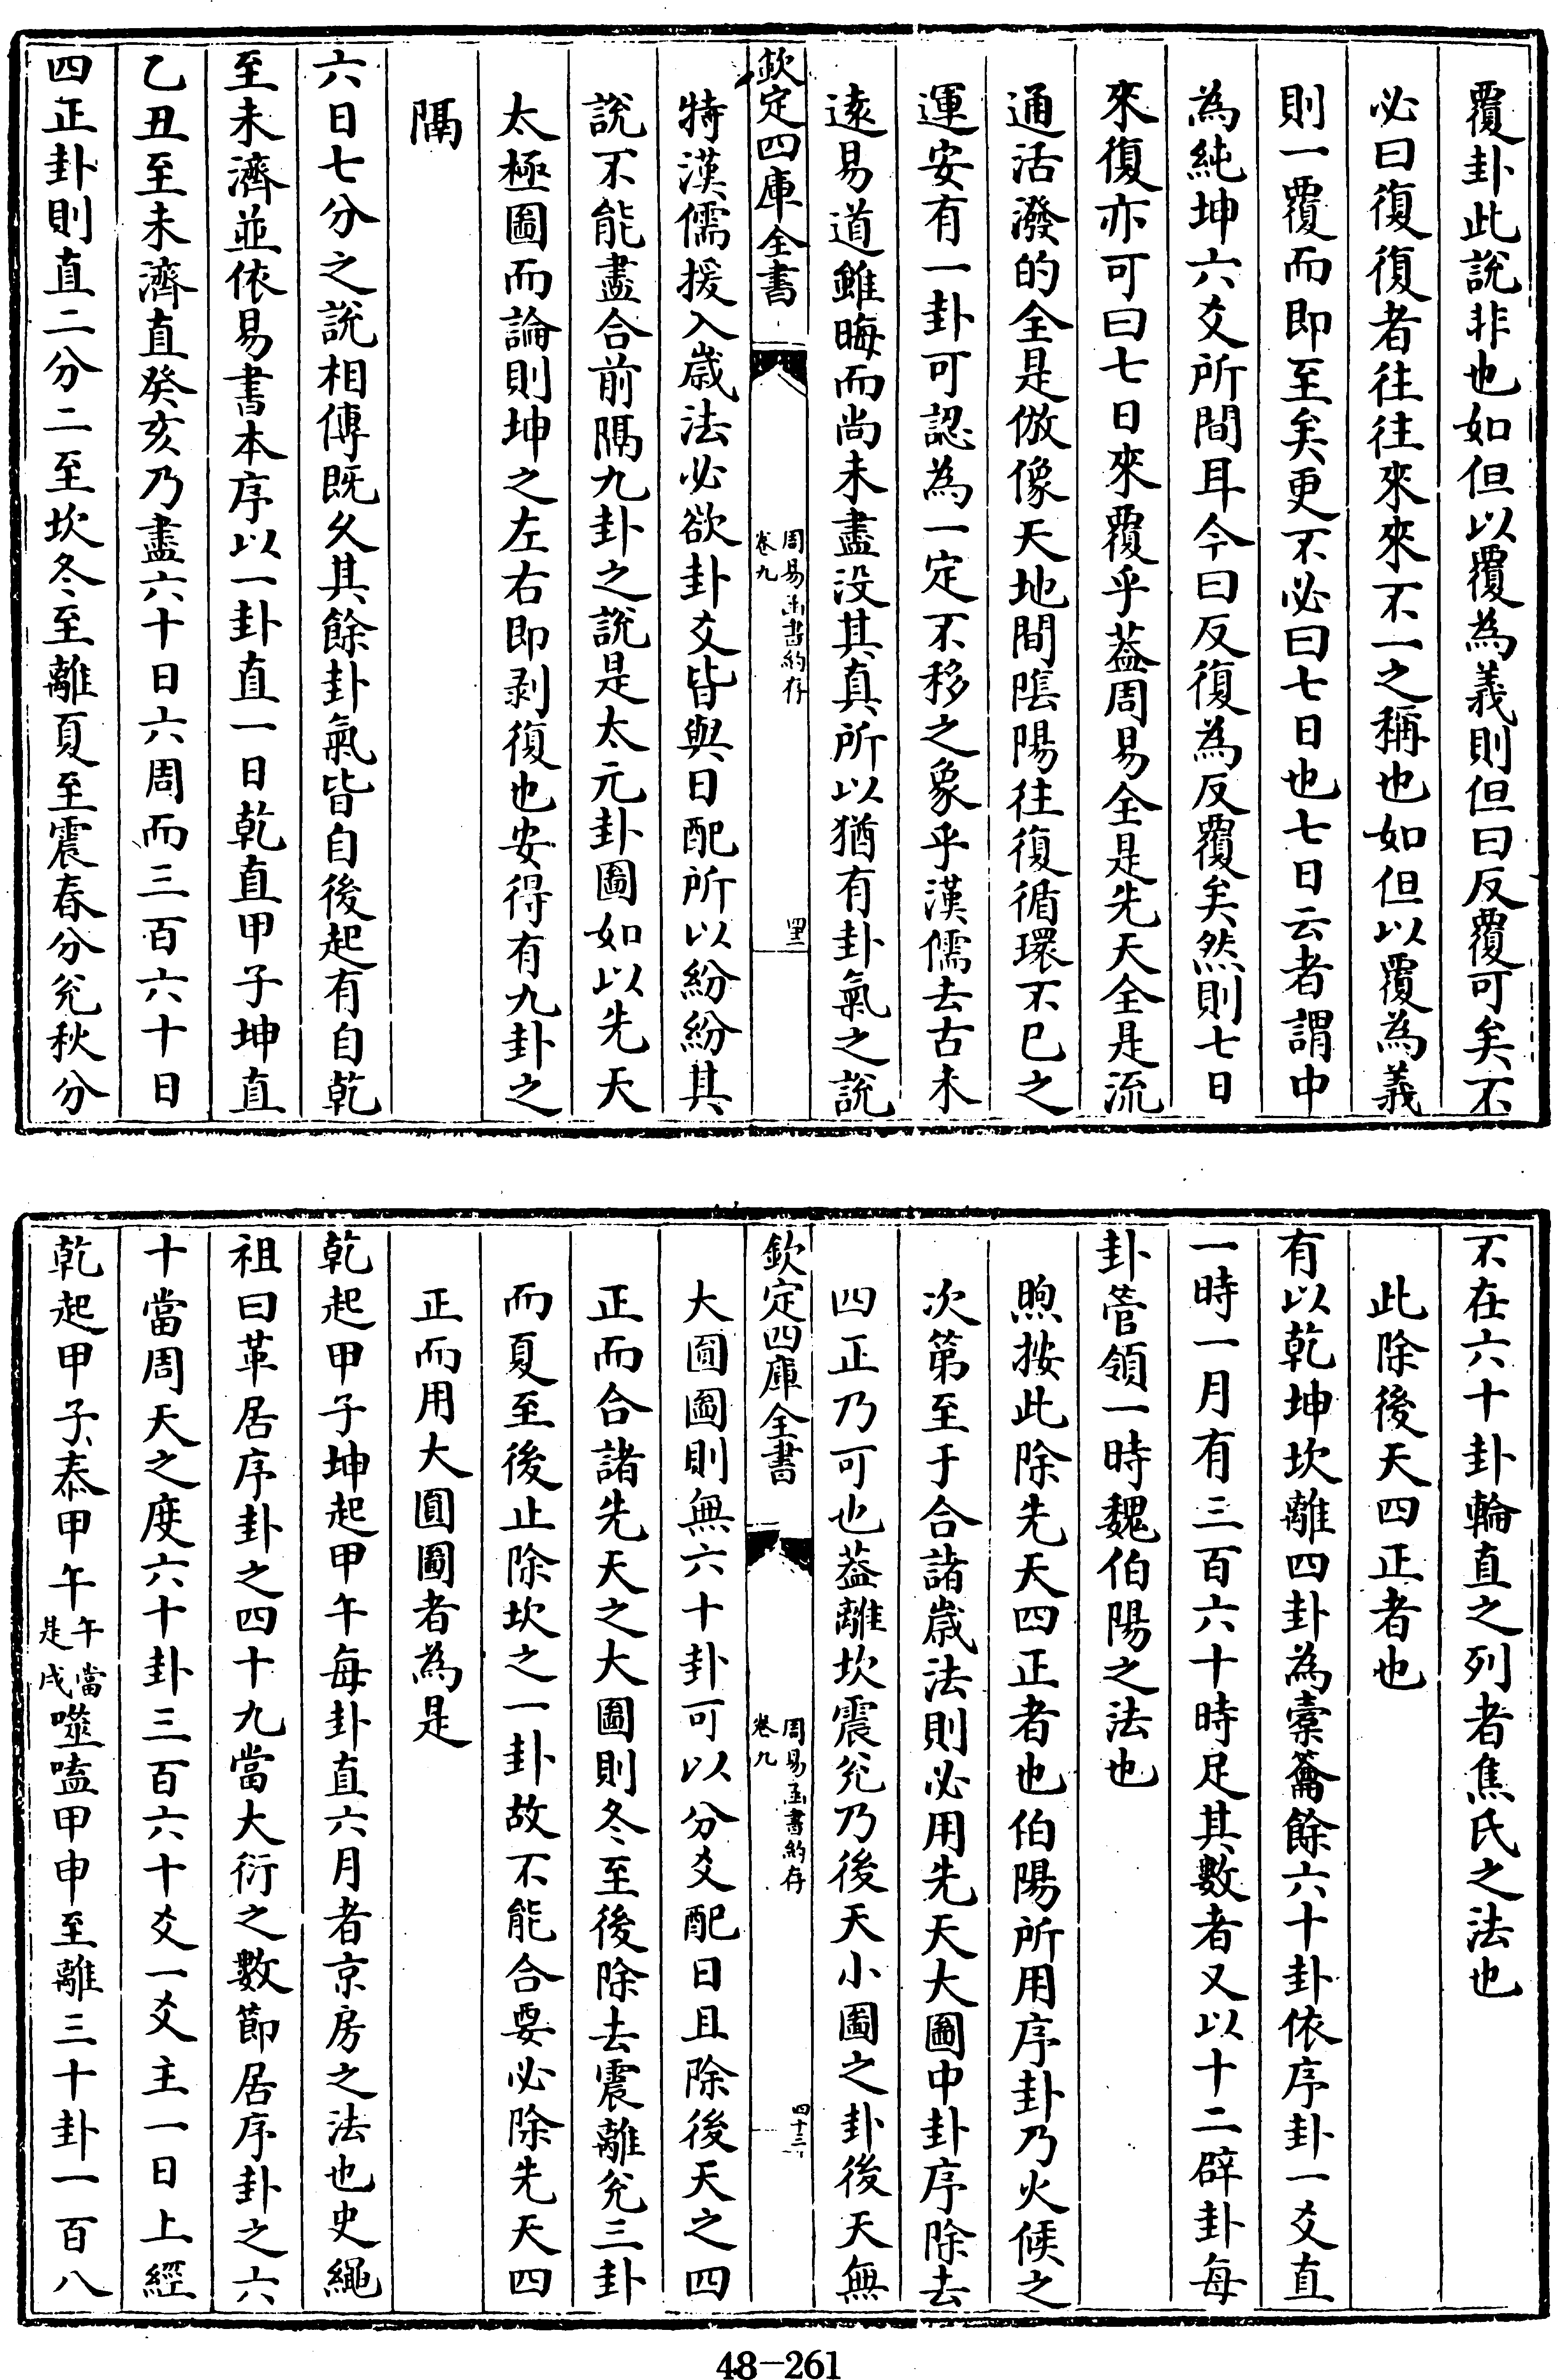 覆卦此説非也如但以覆為義則但曰反覆可矣不
必曰復復者往往來來不一之稱也如但以覆為義
則一覆而即至矣更不必曰七日也七日云者謂中
為純坤六爻所間耳今曰反復為反覆矣然則七日
來復亦可曰七日來覆乎葢周易全是先天全是流
通活潑的全是倣像天地間隂陽往復循環不已之
運安有一卦可認為一定不移之象乎漢儒去古未
逺易道雖晦而尚未盡没其真所以猶有卦氣之説
欽定四庫全書
周易函書約存
卷九
四十二
特漢儒援入嵗法必欲卦爻皆與日配所以紛紛其
説不能盡合前隔九卦之説是太元卦圖如以先天
太極圖而論則坤之左右即剥復也安得有九卦之
隔
六日七分之説相傳既乆其餘卦氣皆自後起有自乾
至未濟並依易書本序以一卦直一日乾直甲子坤直
乙丑至未濟直癸亥乃盡六十日六周而三百六十日
四正卦則直二分二至坎冬至離夏至震春分兊秋分
不在六十卦輪直之列者焦氏之法也
此除後天四正者也
有以乾坤坎離四卦為橐籥餘六十卦依序卦一爻直
一時一月有三百六十時足其數者又以十二辟卦每
卦管領一時魏伯陽之法也
煦按此除先天四正者也伯陽所用序卦乃火候之
次第至于合諸嵗法則必用先天大圖中卦序除去
四正乃可也葢離坎震兊乃後天小圖之卦後天無
欽定四庫全書
周易函書約存
卷九
四十三
大圓圖則無六十卦可以分爻配日且除後天之四
正而合諸先天之大圖則冬至後除去震離兊三卦
而夏至後止除坎之一卦故不能合要必除先天四
正而用大圓圖者為是
乾起甲子坤起甲午每卦直六月者京房之法也史繩
祖曰革居序卦之四十九當大衍之數節居序卦之六
十當周天之度六十卦三百六十爻一爻主一日上經
乾起甲子泰甲午午當是戌噬嗑甲申至離三十卦一百八
48-261